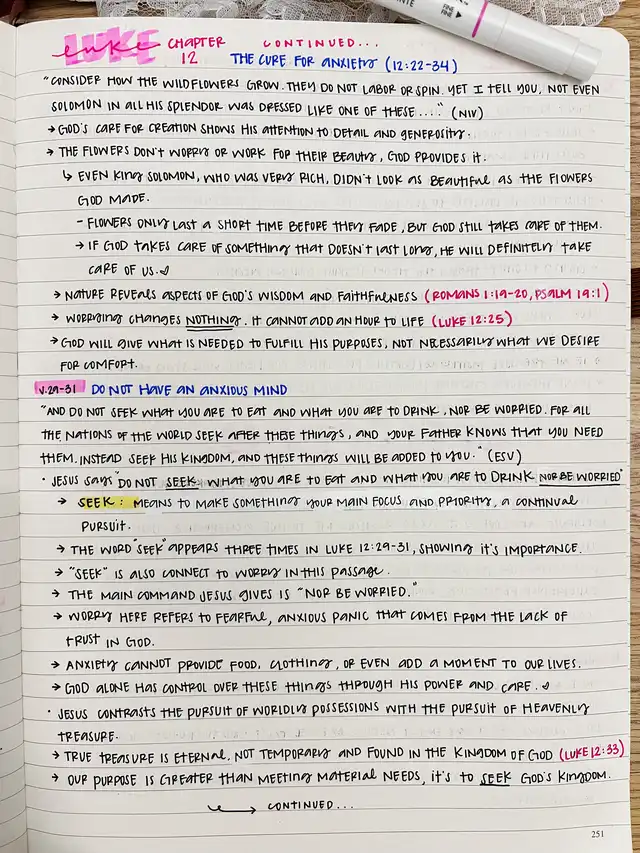 LUKE CHAPTER 12 CONTINUED...
THE CURE FOR ANXIETY (12:22-34)
"CONSIDER HOW THE WILDFLOWERS GROW. THEY DO NOT LABOR OR SPIN. YET I TELL YOU, NOT EVEN
SOLOMON IN ALL HIS SPLENDOR WAS DRESSED LIKE ONE OF THESE...." (NIV)
→ GOD'S CARE FOR CREATION SHOWS HIS ATTENTION TO DETAIL AND GENEROSITY.
→ THE FLOWERS DON'T WORRY OR WORK FOR THEIR BEAUTY, GOD PROVIDES IT.
↳ EVEN KING SOLOMON, WHO WAS VERY RICH, DIDN'T LOOK AS BEAUTIFUL AS THE FLOWERS
GOD MADE.
- FLOWERS ONLY LAST A SHORT TIME BEFORE THEY FADE, BUT GOD STILL TAKES CARE OF THEM.
→ IF GOD TAKES CARE OF SOMETHING THAT DOESN'T LAST LONG, HE WILL DEFINITELY TAKE
CARE OF US.♡
→ NATURE REVEALS ASPECTS OF GOD'S WISDOM AND FAITHFULNESS (ROMANS 1:19-20, PSALM 19:1)
→ WORRYING CHANGES NOTHING. IT CANNOT ADD AN HOUR TO LIFE (LUKE 12:25)
→ GOD WILL GIVE WHAT IS NEEDED TO FULFILL HIS PURPOSES, NOT NECESSARILY WHAT WE DESIRE
FOR COMFORT.
V.29-31 DO NOT HAVE AN ANXIOUS MIND
"AND DO NOT SEEK WHAT YOU ARE TO EAT AND WHAT YOU ARE TO DRINK, NOR BE WORRIED. FOR ALL
THE NATIONS OF THE WORLD SEEK AFTER THESE THINGS, AND YOUR FATHER KNOWS THAT YOU NEED
THEM. INSTEAD SEEK HIS KINGDOM, AND THESE THINGS WILL BE ADDED TO YOU." (ESV)
· JESUS SAYS "DO NOT SEEK WHAT YOU ARE TO EAT AND WHAT YOU ARE TO DRINK NOR BE WORRIED"
→ SEEK: MEANS TO MAKE SOMETHING YOUR MAIN FOCUS AND PRIORITY, A CONTINUAL
PURSUIT.
→ THE WORD "SEEK" APPEARS THREE TIMES IN LUKE 12:29-31, SHOWING IT'S IMPORTANCE.
→ "SEEK" IS ALSO CONNECT TO WORRY IN THIS PASSAGE.
→ THE MAIN COMMAND JESUS GIVES IS "NOR BE WORRIED."
→ WORRY HERE REFERS TO FEARFUL, ANXIOUS PANIC THAT COMES FROM THE LACK OF
TRUST IN GOD.
→ ANXIETY CANNOT PROVIDE FOOD, CLOTHING, OR EVEN ADD A MOMENT TO OUR LIVES.
→ GOD ALONE HAS CONTROL OVER THESE THINGS THROUGH HIS POWER AND CARE.♡
· JESUS CONTRASTS THE PURSUIT OF WORLDLY POSSESSIONS WITH THE PURSUIT OF HEAVENLY
TREASURE.
→ TRUE TREASURE IS ETERNAL, NOT TEMPORARY AND FOUND IN THE KINGDOM OF GOD (LUKE 12:33)
→ OUR PURPOSE IS GREATER THAN MEETING MATERIAL NEEDS, IT'S TO SEEK GOD'S KINGDOM.
→ CONTINUED...
251